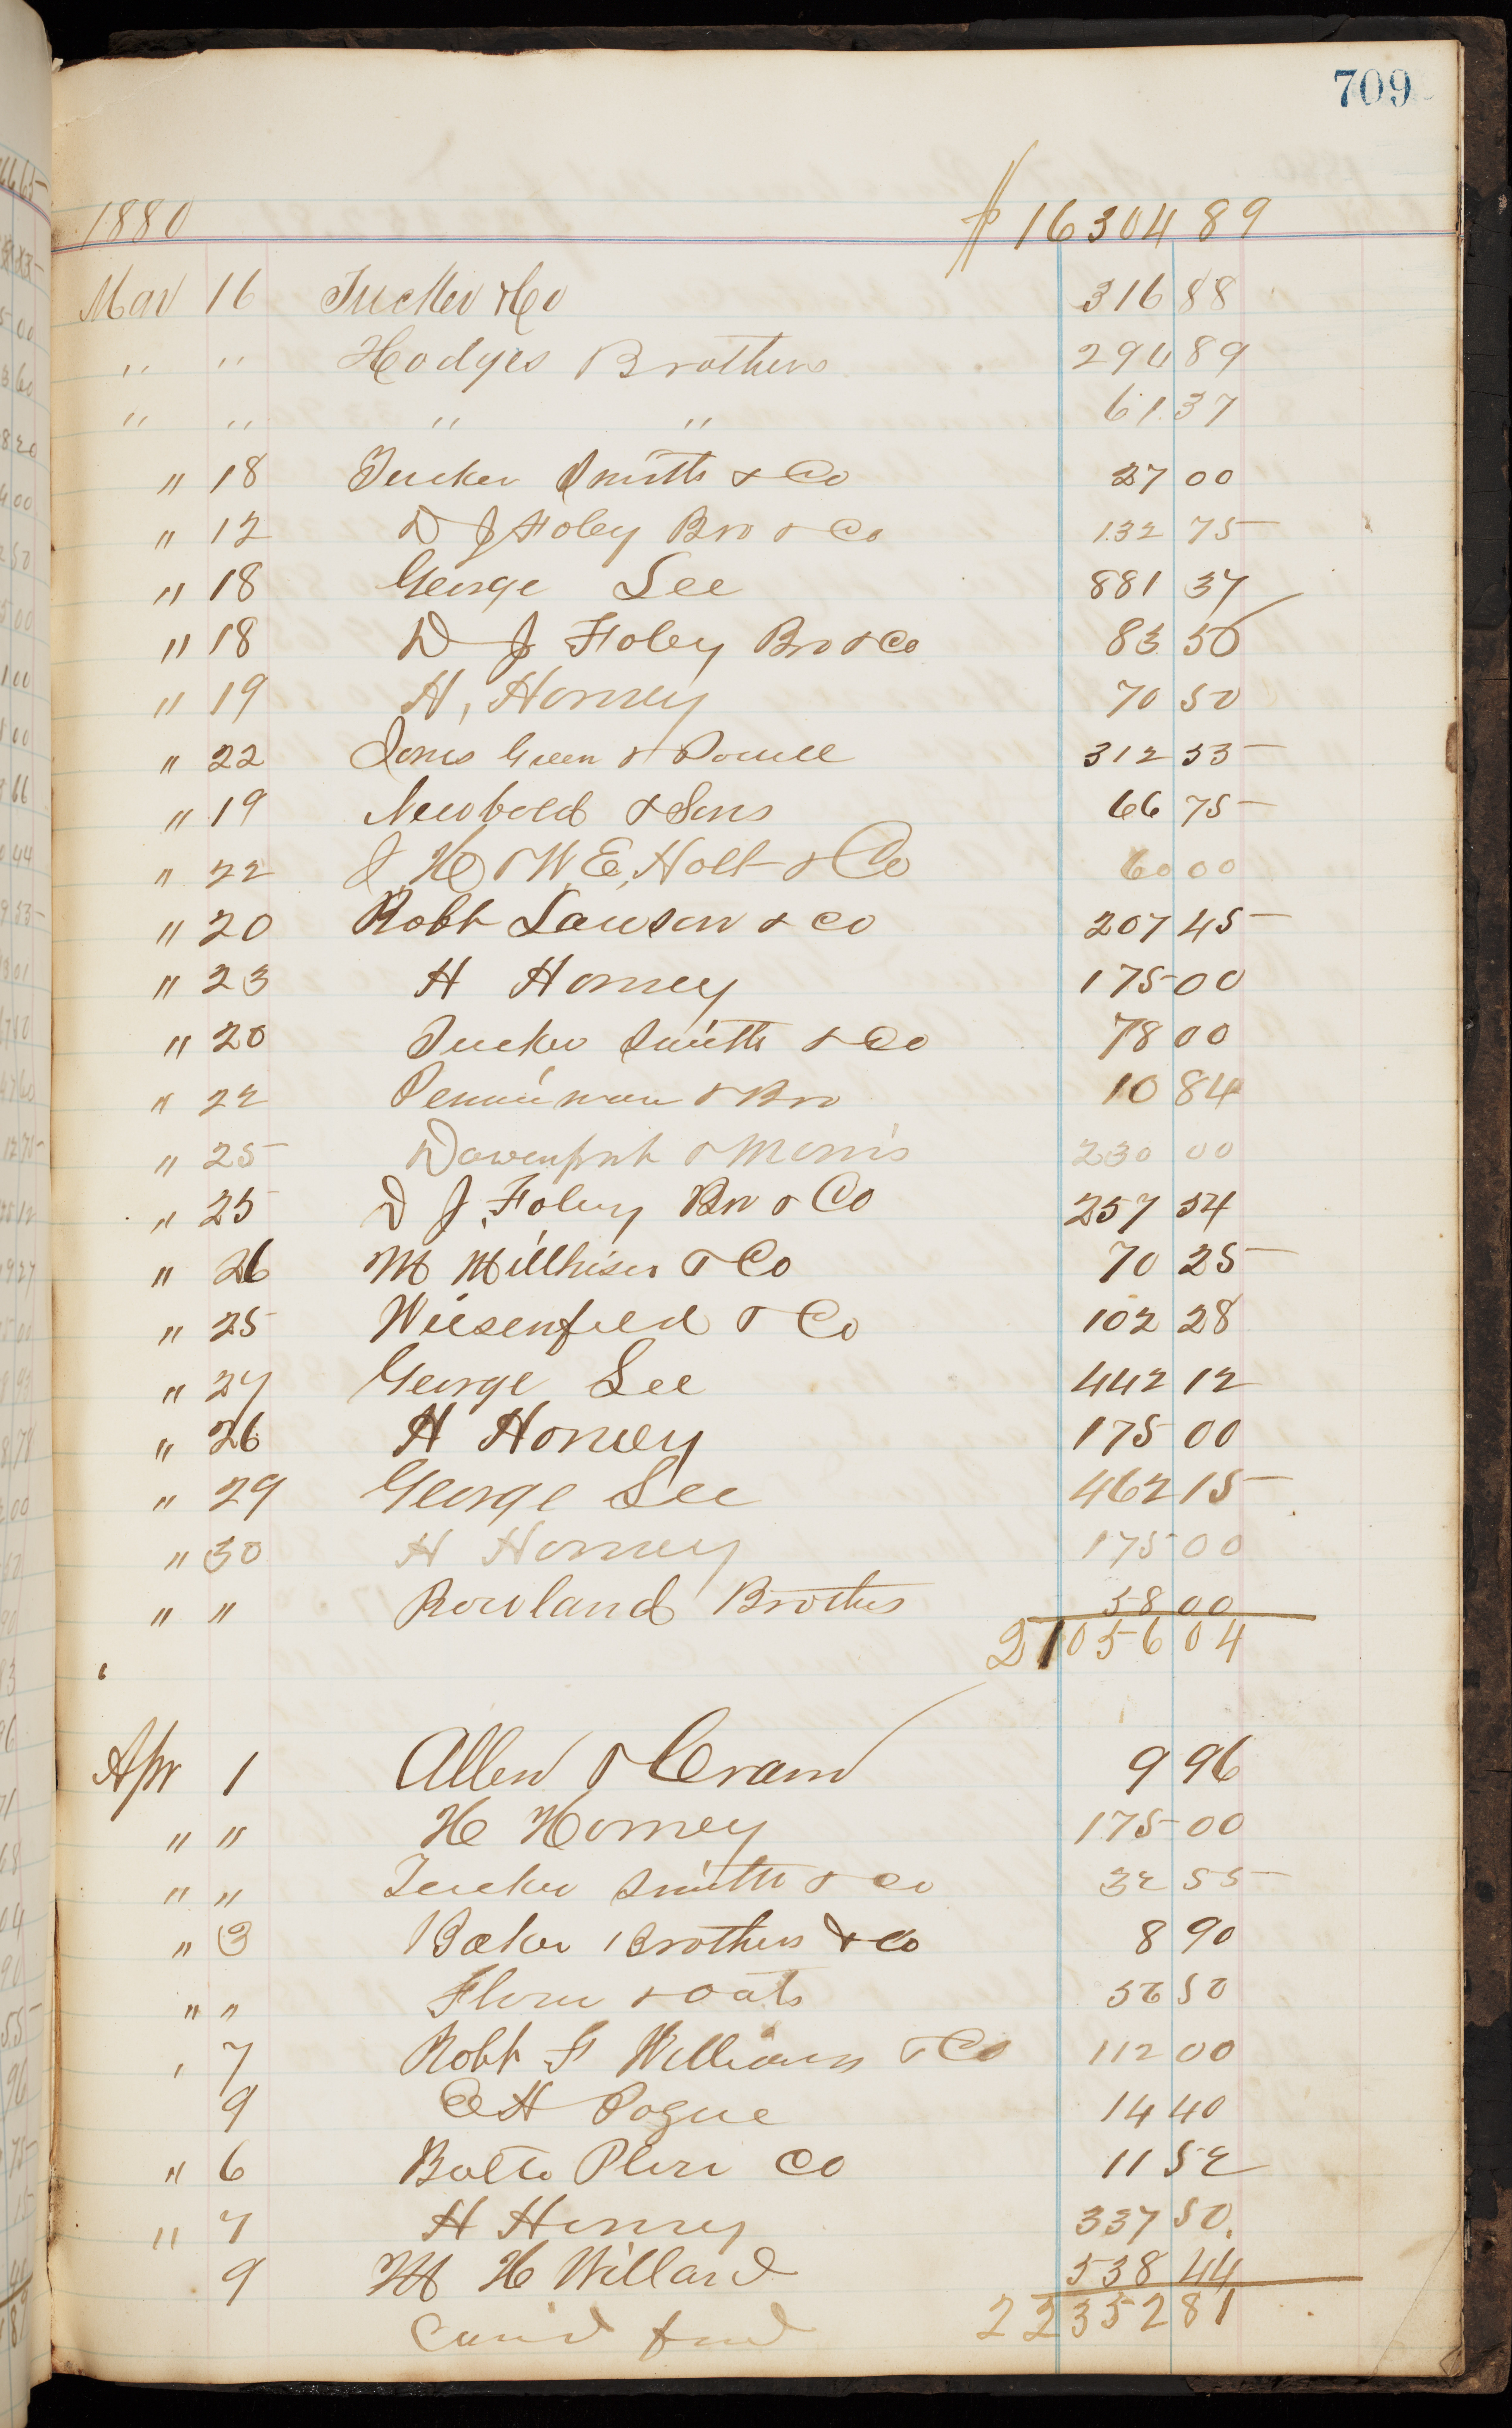 709
1880 $ 16304 89
Mar 16 Tucker & Co 316 88
" " Hodges Brothers 294 89
" " " " 61 37
" 18 Tucker Smith & Co 27 00
" 12 D J Foley Bro & Co 132 75
" 18 George Lee 881 37
" 18 D J Foley Bro & Co 83 50
" 19 H, Horney 70 50
" 22 Jones Green & Powell 312 53
" 19 Newbold & Sons 66 75
" 22 J. H & W. E, Holt & Co 60 00
" 20 Robt Lawson & Co 207 45
" 23 H Horney 175 00
" 20 Tucker Smith & Co 78 00
" 22 Penniman & Bro 10 84
" 25 Davenport & Morris 230 00
" 25 D J. Foley Bro & Co 257 54
" 26 M Millhiser & Co 70 25
" 25 Wiesenfeld & Co 102 28
" 27 George Lee 442 12
" 26 H Horney 175 00
" 29 George Lee 462 15
" 30 H Horney 175 00
" " Rowland Brothers 58 00
21056 04
Apr 1 Allen & Cram 9 96
" " H Horney 175 00
" " Tucker Smith & Co 32 55
" 3 Baker Brothers & Co 8 90
" " Flour & Oats 56 50
" 7 Robt F Williams & Co 112 00
9 H Pogue 14 40
" 6 Balto Co 11 52
" 7 H Horney 337 50.
9 M H Willard 538 44
Car'd ford 22352 81